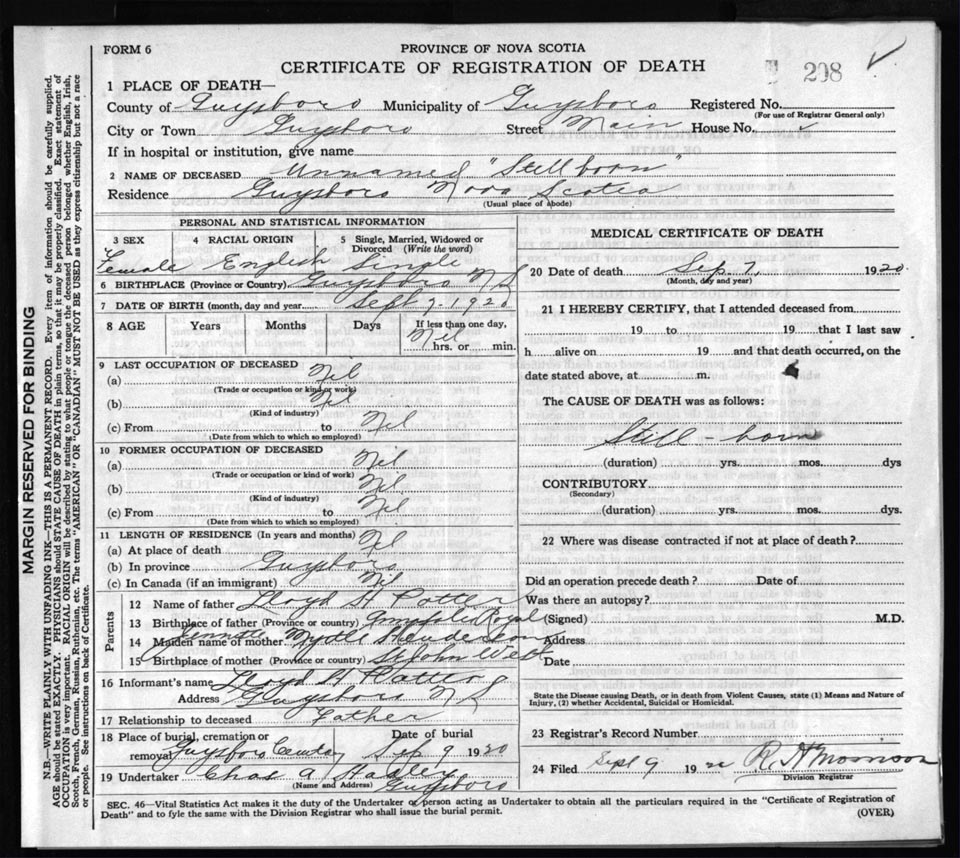 FORM 6
PROVINCE OF NOVA SCOTIA
CERTIFICATE OF REGISTRATION OF DEATH
208
1 PLACE OF DEATH—
County of Guysboro Municipality of Guysboro Registered No.
(For use of Registrar General only)
City or Town Guysboro Street Main House No.
If in hospital or institution, give name
2 NAME OF DECEASED Unnamed "Stillborn"
Residence Guysboro Nova Scotia
(Usual place of abode)
PERSONAL AND STATISTICAL INFORMATION
3 SEX 4 RACIAL ORIGIN 5 Single, Married, Widowed or Divorced (Write the word)
Female English Single
6 BIRTHPLACE (Province or Country) Guysboro N S
7 DATE OF BIRTH (month, day and year) Sept 7 - 1920
8 AGE Years Months Days If less than one day,
Nil
hrs. or min.
9 LAST OCCUPATION OF DECEASED
(a) Nil
(Trade or occupation or kind of work)
(b) Nil
(Kind of industry)
(c) From to Nil
(Date from which to which so employed)
10 FORMER OCCUPATION OF DECEASED
(a) Nil
(Trade or occupation or kind of work)
(b) Nil
(Kind of industry)
(c) From to Nil
(Date from which to which so employed)
11 LENGTH OF RESIDENCE (In years and months)
(a) At place of death Nil
(b) In province Guysboro
(c) In Canada (if an immigrant) Nil
Parents
12 Name of father Lloyd H Potter
13 Birthplace of father (Province or country) Royal
14 Maiden name of mother Jennette Myrtle Henderson
15 Birthplace of mother (Province or country) St John West
16 Informant's name Lloyd H Potter
Address Guysboro N S
17 Relationship to deceased Father
18 Place of burial, cremation or removal Date of burial
Guysboro Sep 9 1920
19 Undertaker Chas A Hadley
(Name and Address) Guysboro
MEDICAL CERTIFICATE OF DEATH
20 Date of death Sep 7, 1920
(Month, day and year)
21 I HEREBY CERTIFY, that I attended deceased from
19 to 19 that I last saw
h alive on 19 and that death occurred, on the
date stated above, at m.
The CAUSE OF DEATH was as follows:
Still - born
(duration) yrs. mos. dys
CONTRIBUTORY
(Secondary)
(duration) yrs. mos. dys.
22 Where was disease contracted if not at place of death?
Did an operation precede death? Date of
Was there an autopsy?
(Signed) M.D.
Address
Date
State the Disease causing Death, or in death from Violent Causes, state (1) Means and Nature of
Injury, (2) whether Accidental, Suicidal or Homicidal.
23 Registrar's Record Number
24 Filed Sept 9 1920 R. H Morrison
Division Registrar
SEC. 46—Vital Statistics Act makes it the duty of the Undertaker or person acting as Undertaker to obtain all the particulars required in the "Certificate of Registration of
Death" and to fyle the same with the Division Registrar who shall issue the burial permit.
(OVER)
MARGIN RESERVED FOR BINDING
N.B.—WRITE PLAINLY WITH UNFADING INK—THIS IS A PERMANENT RECORD. Every item of information should be carefully supplied.
AGE should be stated EXACTLY. PHYSICIANS should STATE CAUSE OF DEATH in plain terms, so that it may be properly classified. Exact statement of
OCCUPATION is very important. RACIAL ORIGIN will be described by stating to what people or tongue the deceased person belonged, whether English, Irish,
Scotch, French, German, Russian, Ruthenian, etc. The terms "AMERICAN" OR "CANADIAN" MUST NOT BE USED as they express citizenship but not a race
or people. See instructions on back of Certificate.